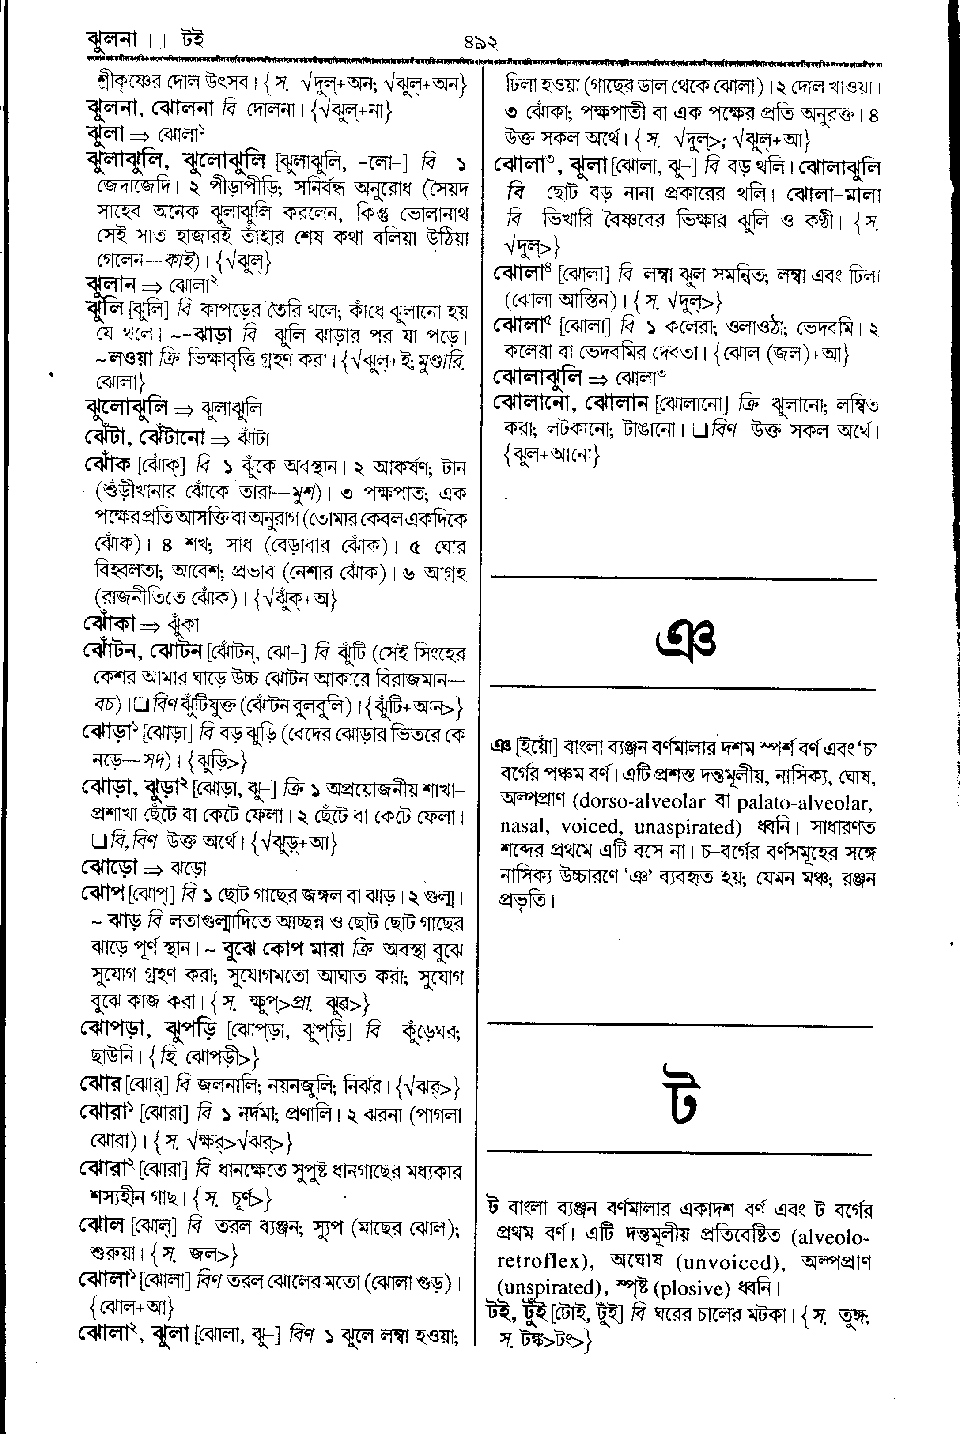 ঝুলনা ।। টই
৪৯২
শ্রীকৃষ্ণের দোল উৎসব। {স. √দুল্+অন; √ঝুল্+অন}
ঝুলনা, ঝোলনা বি দোলনা। {√ঝুল্+না}
ঝুলা ⇒ ঝোলা২
ঝুলাঝুলি, ঝুলোঝুলি [ঝুলাঝুলি, -লো-] বি ১
জেদাজেদি। ২ পীড়াপীড়ি; সনির্বন্ধ অনুরোধ (সৈয়দ
সাহেব অনেক ঝুলাঝুলি করলেন, কিন্তু ভোলানাথ
সেই সাত হাজারই তাঁহার শেষ কথা বলিয়া উঠিয়া
গেলেন—কাই)। {√ঝুল্}
ঝুলান ⇒ ঝোলা২
ঝুলি [ঝুলি] বি কাপড়ের তৈরি থলে; কাঁধে ঝুলানো হয়
যে থলে। ~-ঝাড়া বি ঝুলি ঝাড়ার পর যা পড়ে।
~লওয়া ক্রি ভিক্ষাবৃত্তি গ্রহণ করা। {√ঝুল্+ই; মুণ্ডারি.
ঝোলা}
ঝুলোঝুলি ⇒ ঝুলাঝুলি
ঝেঁটা, ঝেঁটানো ⇒ ঝাঁটা
ঝোঁক [ঝোঁক্] বি ১ ঝুঁকে অবস্থান। ২ আকর্ষণ; টান
(শুঁড়ীখানার ঝোঁকে তারা—মুশ)। ৩ পক্ষপাত; এক
পক্ষের প্রতি আসক্তি বা অনুরাগ (তোমার কেবল একদিকে
ঝোঁক)। ৪ শখ; সাধ (বেড়াবার ঝোঁক)। ৫ ঘোর
বিহ্বলতা; আবেশ; প্রভাব (নেশার ঝোঁক)। ৬ আগ্রহ
(রাজনীতিতে ঝোঁক)। {√ঝুঁক্+অ}
ঝোঁকা ⇒ ঝুঁকা
ঝোঁটন, ঝোটন [ঝোঁটন্, ঝো-] বি ঝুঁটি (সেই সিংহের
কেশর আমার ঘাড়ে উচ্চ ঝোটন আকারে বিরাজমান—
বচ)। ❑ বিণ ঝুঁটিযুক্ত (ঝোঁটন বুলবুলি)। {ঝুঁটি+অন>}
ঝোড়া১ [ঝোড়া] বি বড় ঝুড়ি (বেদের ঝোড়ার ভিতরে কে
নড়ে—সদ)। {ঝুড়ি>}
ঝোড়া, ঝুড়া২ [ঝোড়া, ঝু-] ক্রি ১ অপ্রয়োজনীয় শাখা-
প্রশাখা ছেঁটে বা কেটে ফেলা। ২ ছেঁটে বা কেটে ফেলা।
❑ বি, বিণ উক্ত অর্থে। {√ঝুড়্+আ}
ঝোড়ো ⇒ ঝড়ো
ঝোপ [ঝোপ্] বি ১ ছোট গাছের জঙ্গল বা ঝাড়। ২ গুল্ম।
~ ঝাড় বি লতাগুল্মাদিতে আচ্ছন্ন ও ছোট ছোট গাছের
ঝাড়ে পূর্ণ স্থান। ~ বুঝে কোপ মারা ক্রি অবস্থা বুঝে
সুযোগ গ্রহণ করা; সুযোগমতো আঘাত করা; সুযোগ
বুঝে কাজ করা। {স. ক্ষুপ>প্রা. ঝুব>}
ঝোপড়া, ঝুপড়ি [ঝোপ্‌ড়া, ঝুপ্‌ড়ি] বি কুঁড়েঘর;
ছাউনি। {হি. ঝোপড়ী>}
ঝোর [ঝোর্] বি জলনালি; নয়নজুলি; নির্ঝর। {√ঝর্>}
ঝোরা১ [ঝোরা] বি ১ নর্দমা; প্রণালি। ২ ঝরনা (পাগলা
ঝোরা)। {স. √ক্ষর্>√ঝর্>}
ঝোরা২ [ঝোরা] বি ধানক্ষেতে সুপুষ্ট ধানগাছের মধ্যকার
শস্যহীন গাছ। {স. চূর্ণ>}
ঝোল [ঝোল্] বি তরল ব্যঞ্জন; স্যুপ (মাছের ঝোল);
শুরুয়া। {স. জল>}
ঝোলা১ [ঝোলা] বিণ তরল ঝোলের মতো (ঝোলা গুড়)।
{ঝোল+আ}
ঝোলা২, ঝুলা [ঝোলা, ঝু-] বিণ ১ ঝুলে লম্বা হওয়া;
ঢিলা হওয়া (গাছের ডাল থেকে ঝোলা)। ২ দোল খাওয়া।
৩ ঝোঁকা; পক্ষপাতী বা এক পক্ষের প্রতি অনুরক্ত। ৪
উক্ত সকল অর্থে। {স. √দুল্>; √ঝুল্+আ}
ঝোলা৩, ঝুলা [ঝোলা, ঝু-] বি বড় থলি। ঝোলাঝুলি
বি ছোট বড় নানা প্রকারের থলি। ঝোলা-মালা
বি ভিখারি বৈষ্ণবের ভিক্ষার ঝুলি ও কণ্ঠী। {স.
√দুল্>}
ঝোলা৪ [ঝোলা] বি লম্বা ঝুল সমন্বিত; লম্বা এবং ঢিলা
(ঝোলা আস্তিন)। {স. √দুল্>}
ঝোলা৫ [ঝোলা] বি ১ কলেরা; ওলাওঠা; ভেদবমি। ২
কলেরা বা ভেদবমির দেবতা। {ঝোল (জল)+আ}
ঝোলাঝুলি ⇒ ঝোলা৩
ঝোলানো, ঝোলান [ঝোলানো] ক্রি ঝুলানো; লম্বিত
করা; লটকানো; টাঙানো। ❑ বিণ উক্ত সকল অর্থে।
{ঝুল+আনো}
ঞ
ঞ [ইয়োঁ] বাংলা ব্যঞ্জন বর্ণমালার দশম স্পর্শ বর্ণ এবং ‘চ’
বর্গের পঞ্চম বর্ণ। এটি প্রশস্ত দন্তমূলীয়, নাসিক্য, ঘোষ,
অল্পপ্রাণ (dorso-alveolar বা palato-alveolar,
nasal, voiced, unaspirated) ধ্বনি। সাধারণত
শব্দের প্রথমে এটি বসে না। চ-বর্গের বর্ণসমূহের সঙ্গে
নাসিক্য উচ্চারণে ‘ঞ’ ব্যবহৃত হয়; যেমন মঞ্চ; রঞ্জন
প্রভৃতি।
ট
ট বাংলা ব্যঞ্জন বর্ণমালার একাদশ বর্ণ এবং ট বর্গের
প্রথম বর্ণ। এটি দন্তমূলীয় প্রতিবেষ্টিত (alveolo-
retroflex), অঘোষ (unvoiced), অল্পপ্রাণ
(unspirated), স্পৃষ্ট (plosive) ধ্বনি।
টই, টুঁই [টোই, টুঁই] বি ঘরের চালের মটকা। {স. তুঙ্গ;
স. টঙ্ক>টং>}